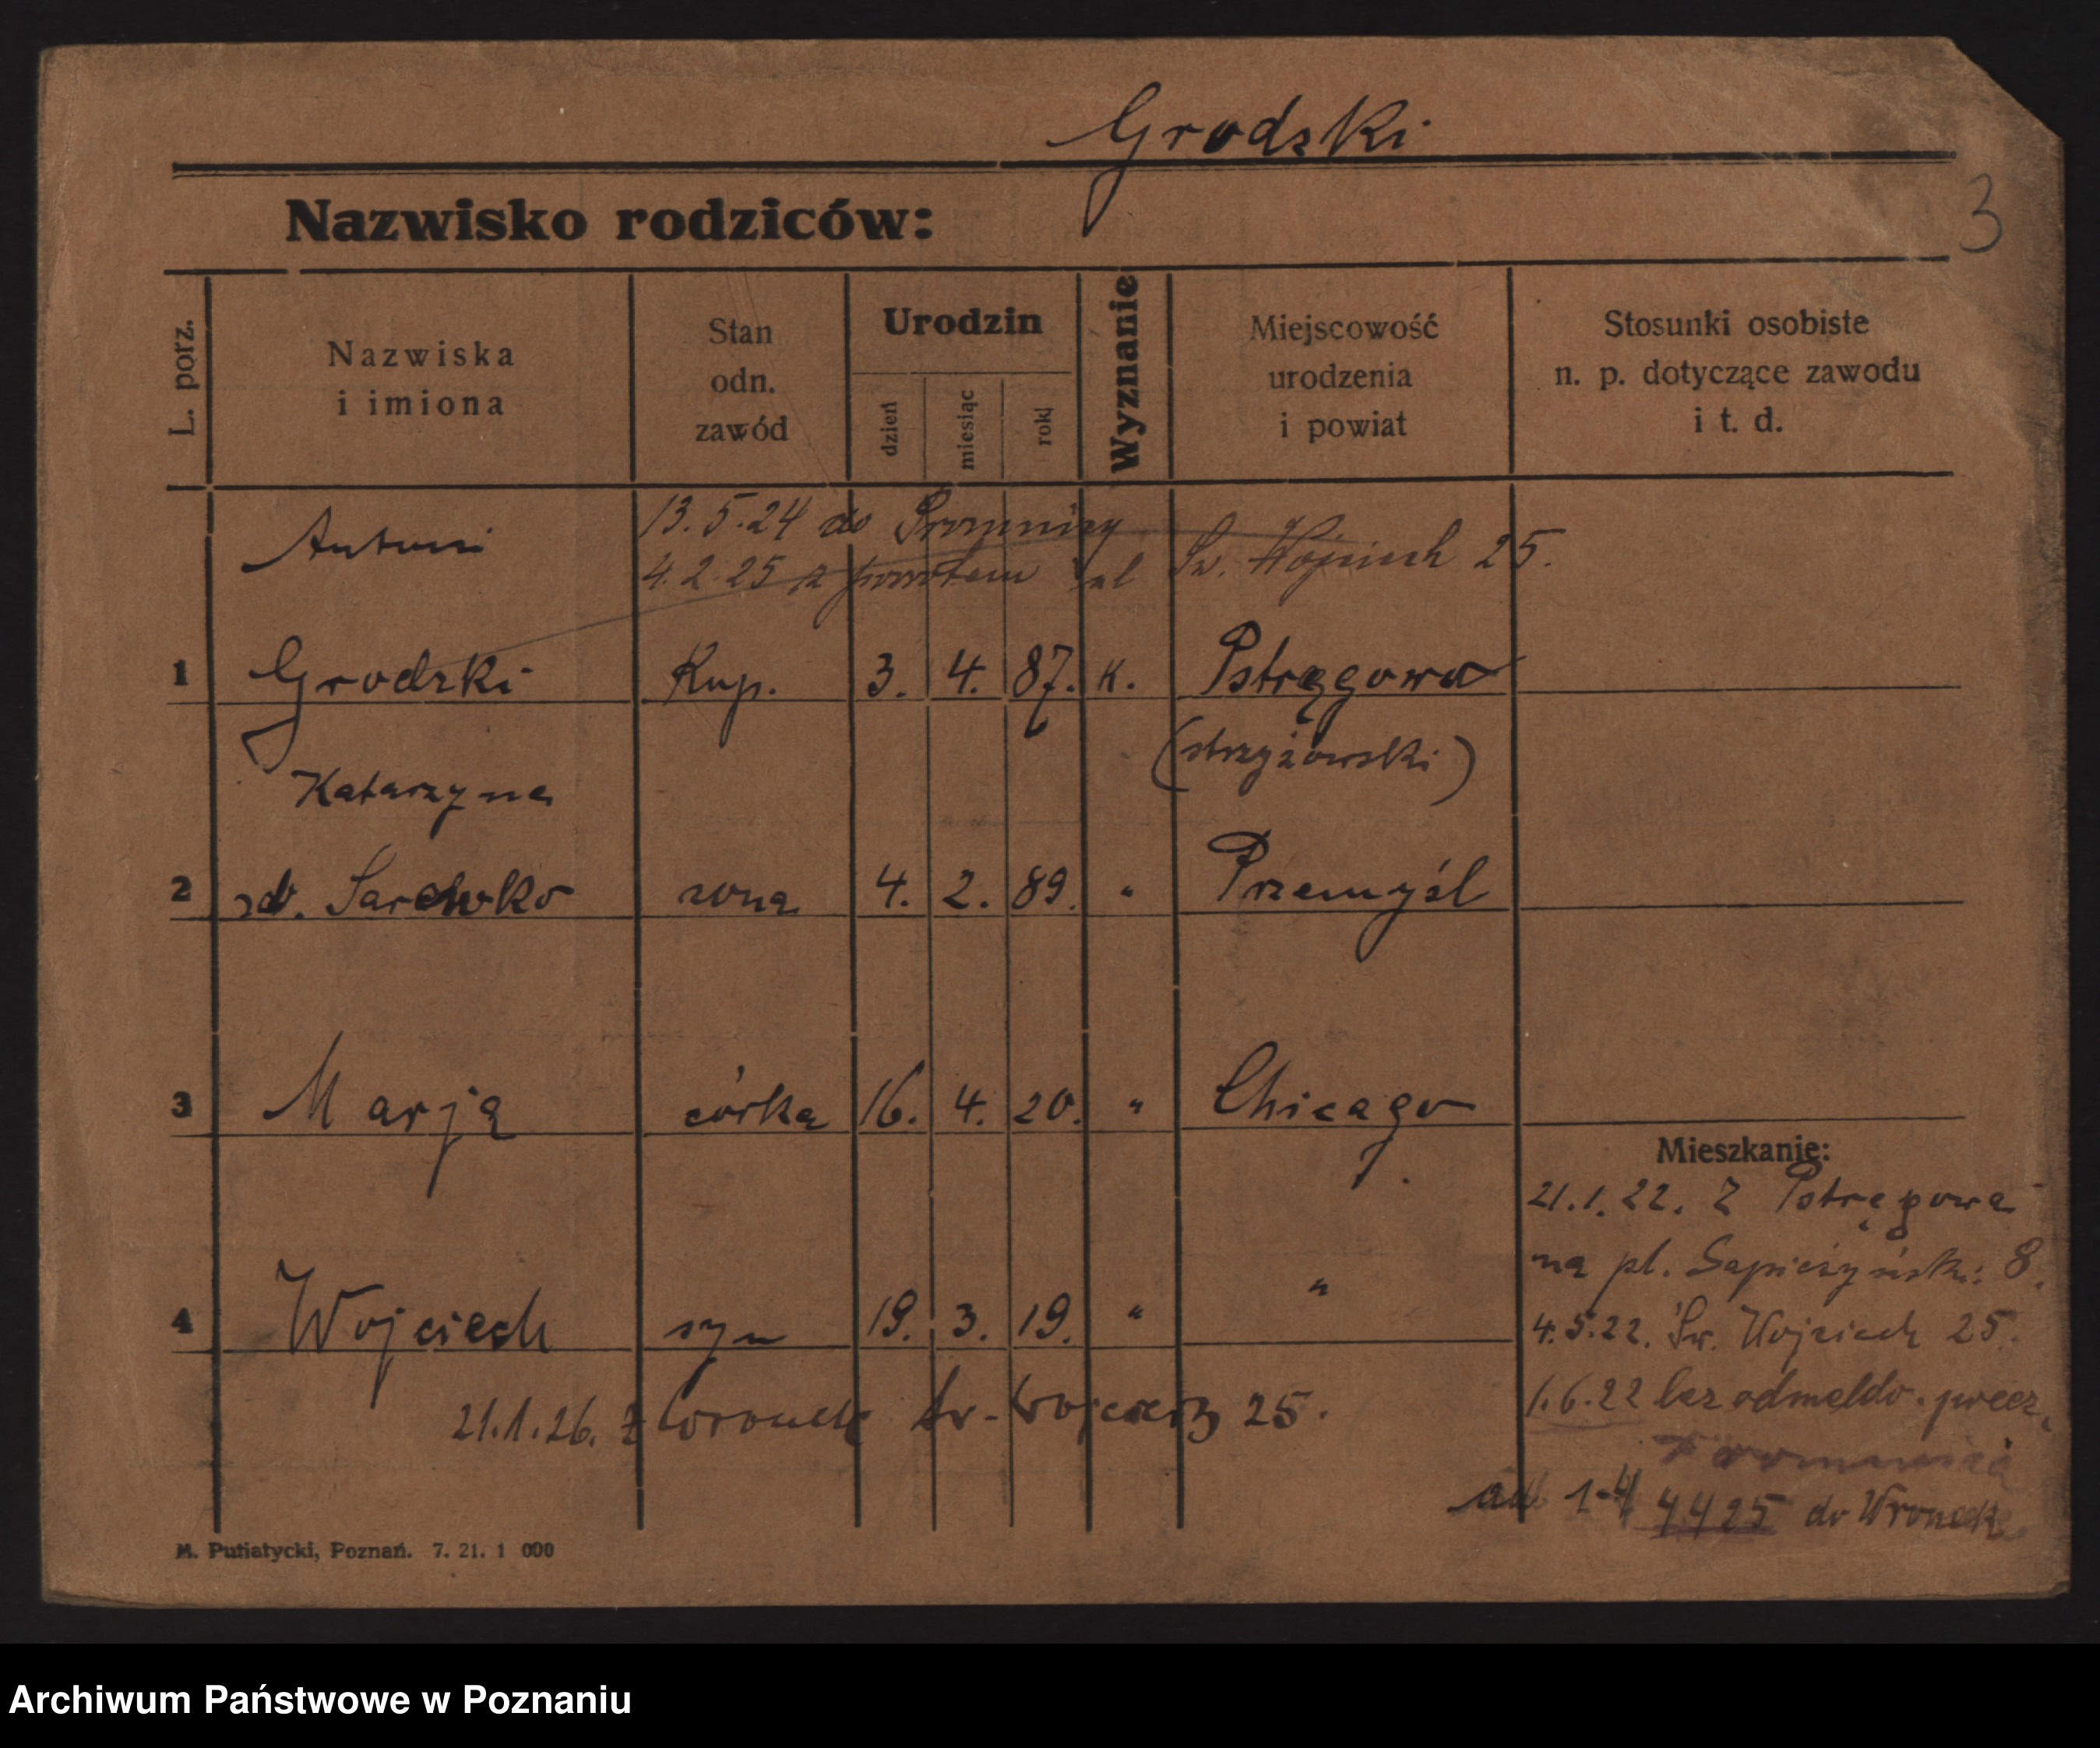 Grodzki
3
Nazwisko rodziców:
L. porz.
Nazwiska
i imiona
Stan
odn.
zawód
Urodzin
dzień
miesiąc
rok
Wyznanie
Miejscowość
urodzenia
i powiat
Stosunki osobiste
n. p. dotyczące zawodu
i t. d.
13.5.24 do
Antoni
4.2.25 z powrotem Św. Wojciech 25.
1 Grodzki Kup. 3. 4. 87. k. Pstrągowa
(strzyżowski)
Katarzyna
2 zd. żona 4. 2. 89. " Przemyśl
3 Marja córka 16. 4. 20. " Chicago
4 Wojciech syn 19. 3. 19. " "
21.1.26. z Wronek Św. Wojciech 25.
Mieszkanie:
21.1.22. Z Pstrągowa
na pl. Sapieżyński 8.
4.5.22. Św. Wojciech 25.
1.6.22 bez odmeldo.
ad 1-4 4 4 25 do Wronek
M. Putiatycki, Poznań. 7. 21. 1 000
Archiwum Państwowe w Poznaniu